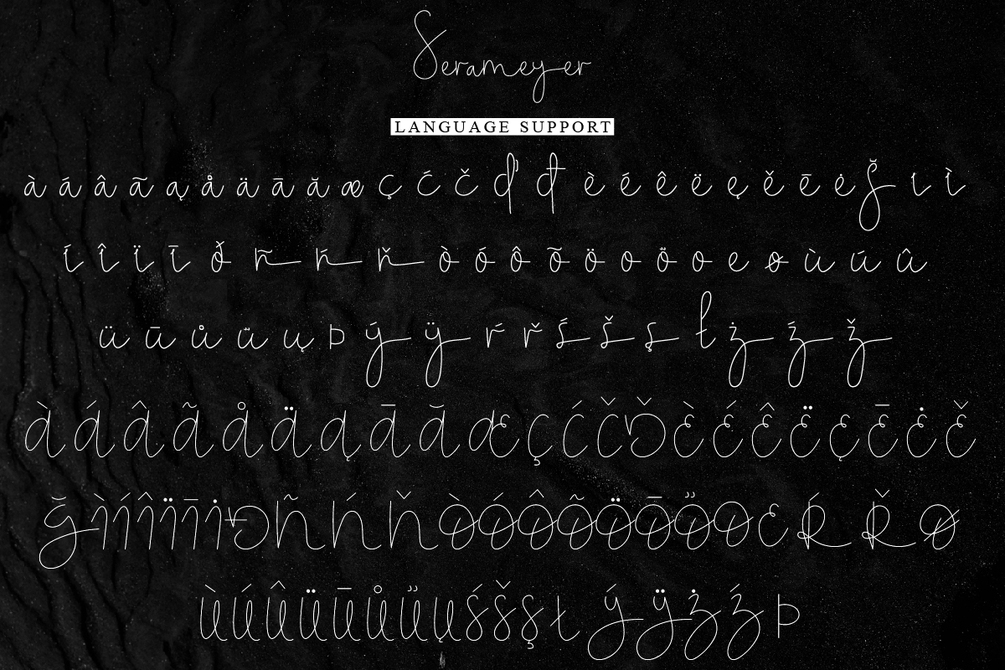 Serameyer
LANGUAGE SUPPORT
à á â ã ą å ä ā ă æ ç ć č ď đ è é ê ë ę ě ē ė ğ i ì
í î ï ī ð ñ ń ň ò ó ô õ ö o ö o e ø ù ú û
ü ū ů ű ų þ ý ÿ ŕ ř ś š ş ł ż ź ž
À Á Â Ã Å Ä Ą Ā Ă Æ Ç Ć Č Ď È É Ê Ë Ę Ē Ė Ě
Ğ Ì Í Î Ï Ī İ Đ Ñ Ń Ň Ò Ó Ô Õ Ö Ō Ő Œ Ŕ Ř Ø
Ù Ú Û Ü Ū Ů Ű Ų Ś Š Ş Ł Ý Ÿ Ż Ź Þ